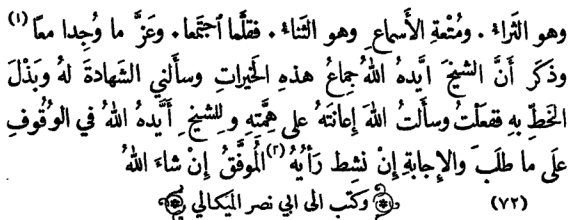 وهو الثَّراءُ . ومُتْعةِ الأَسماعِ وهو الثَناءُ . فقلَّما ٱجتمعا . وعَزَّ ما وُجدا معًا (١)
وذكَر أَنَّ الشيخَ ايَّدهُ اللهُ جماعُ هذهِ الخَيراتِ وسأَلَني الشهادةَ لهُ وبَذْلَ
الخَطِّ بهِ فَفعلتُ وسأَلتُ اللهَ إِعانَتَهُ على همَّتِهِ وللشيخِ أَيَّدهُ اللهُ في الوُقُوفِ
عَلَى ما طلَبَ والإِجابةِ إِنْ نشِط رَأْيُهُ (٢) المُوفَّقُ إِنْ شاءَ اللهُ
(٧٢) وكتب الى ابي نصر الميكالي